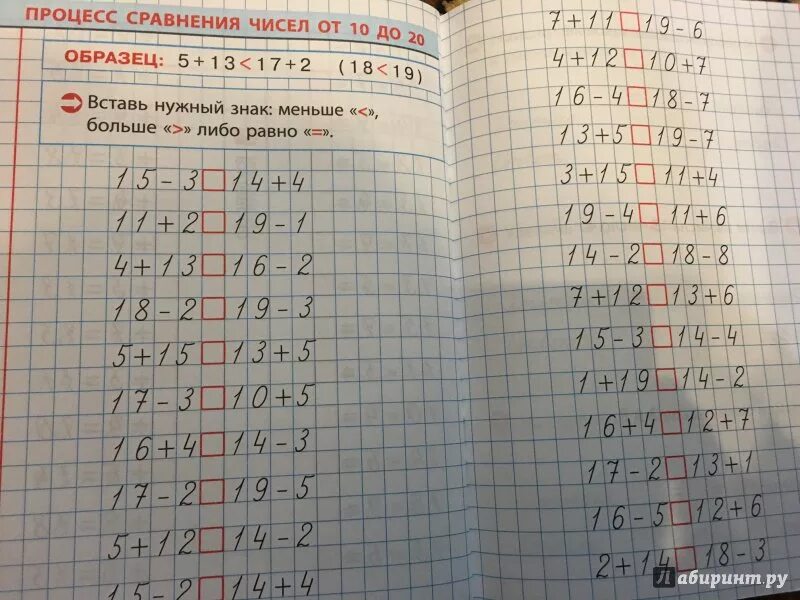 ПРОЦЕСС СРАВНЕНИЯ ЧИСЕЛ ОТ 10 ДО 20
ОБРАЗЕЦ: 5+13<17+2 (18<19)
Вставь нужный знак: меньше «<»,
больше «>» либо равно «=».
15-3□14+4
11+2□19-1
4+13□16-2
18-2□19-3
5+15□13+5
17-3□10+5
16+4□14-3
17-2□19-5
5+12□14-2
15-2□14+4
7+11□19-6
4+12□10+7
16-4□18-7
13+5□19-7
3+15□11+4
19-4□11+6
14-2□18-8
7+12□13+6
15-3□14-4
1+19□14-2
16+4□12+7
17-2□13+1
16-5□12+6
2+14□18-3
Лабиринт.ру